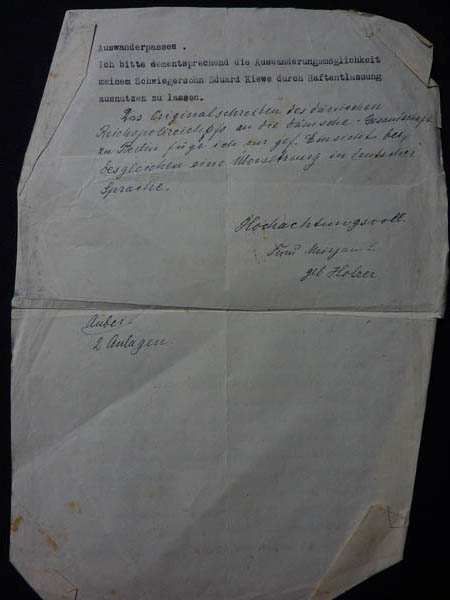 Auswanderpasses .
Ich bitte dementsprechend die Auswanderungsmöglichkeit
meinem Schwiegersohn Eduard Kiewe durch Haftentlassung
ausnutzen zu lassen.
Das Originalschreiben des dänischen
Reichspolizeichefs an die Dänische - Gesandtschaft
zu Berlin füge ich zur gef. Einsicht bei,
desgleichen eine Übersetzung in deutscher
Sprache.
Hochachtungsvoll
Frau
geb
Anbei
2 Anlagen